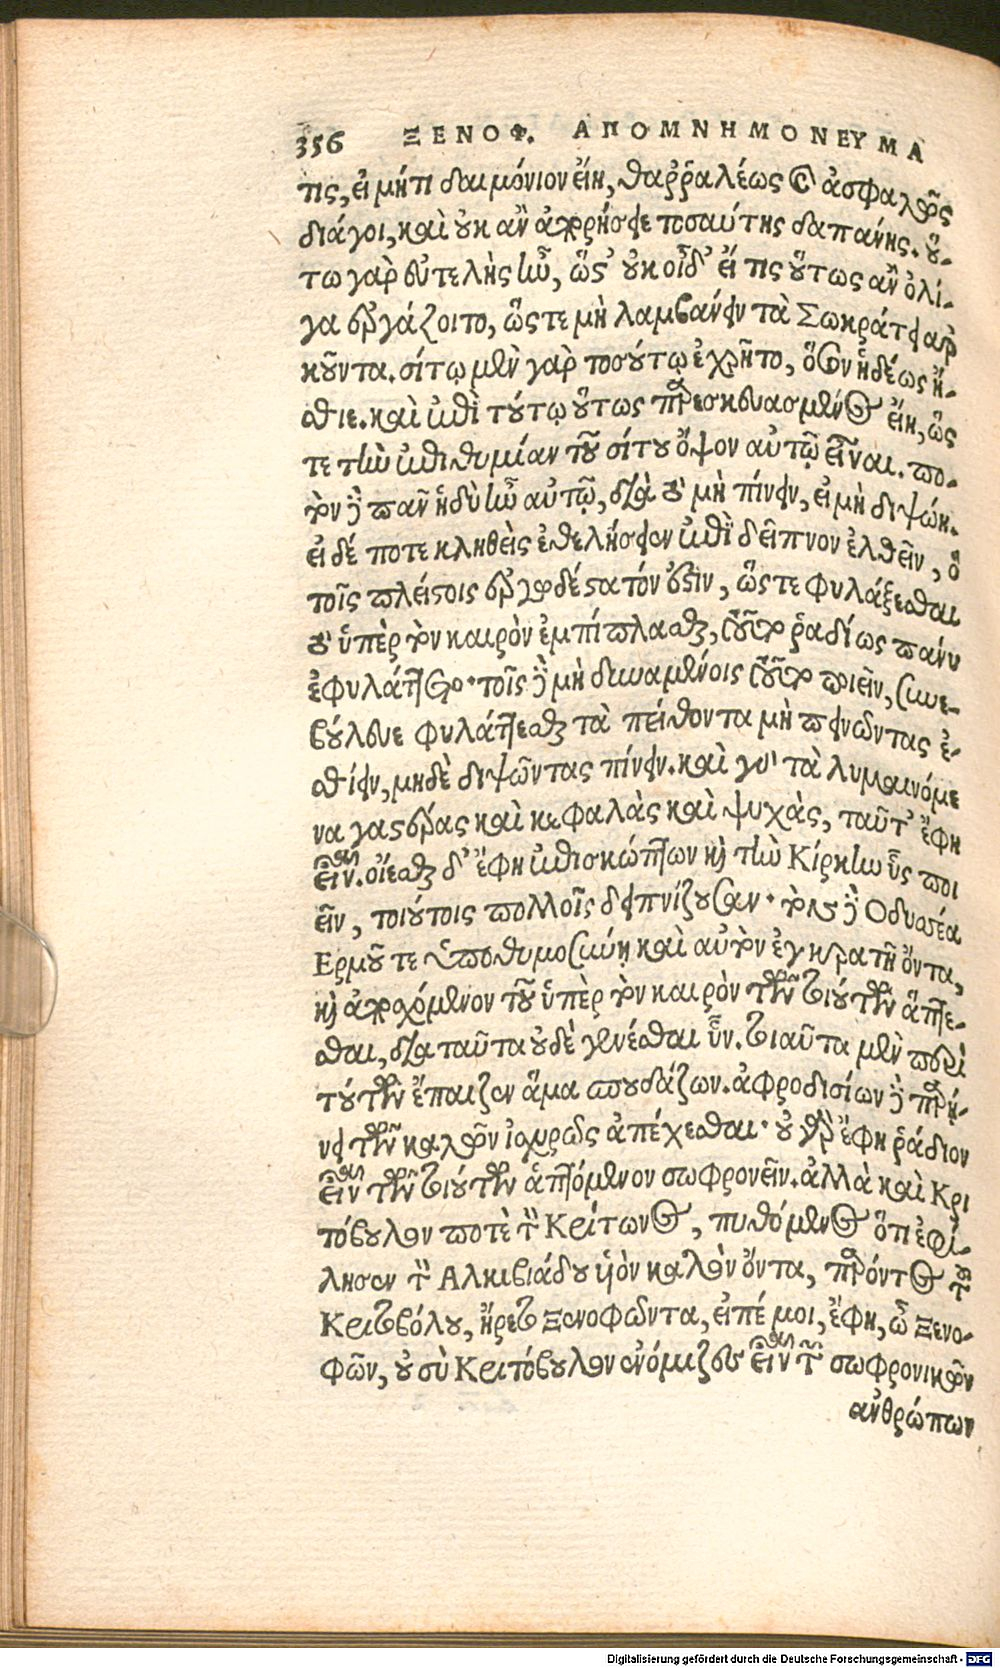 356 ΞΕΝΟΦ. ΑΠΟΜΝΗΜΟΝΕΥΜΑ
τις, εἰ μήτι δαιμόνιον εἴη, θαῤῥαλέως καὶ ἀσφαλῶς
διάγοι, καὶ οὐκ ἂν ἀπορήσειε τοσαύτης δαπάνης. οὕ-
τω γὰρ εὐτελὴς ἦν, ὥςτ' οὐκ οἶδ' εἴ τις οὕτως ἂν ὀλί-
γα ἐργάζοιτο, ὥςτε μὴ λαμβάνειν τὰ Σωκράτει ἀρ
κοῦντα. σίτῳ μὲν γὰρ τοσούτῳ ἐχρῆτο, ὅσον ἡδέως ἤ-
σθιε. καὶ ἐπὶ τούτῳ οὕτως παρεσκευασμένος εἴη, ὥς
τε τὴν ἐπιθυμίαν τοῦ σίτου ὄψον αὐτῷ εἶναι. πο-
τὸν δὲ πᾶν ἡδὺ ἦν αὐτῷ, διὰ τὸ μὴ πίνειν, εἰ μὴ διψώη.
εἰ δέ ποτε κληθεὶς ἐθελήσειεν ἐπὶ δεῖπνον ἐλθεῖν, ὃ
τοῖς πλείστοις ἐργωδέστατόν ἐστιν, ὥςτε φυλάξεσθαι
τὸ ὑπὲρ τὸν καιρὸν ἐμπίπλασθαι, τοῦτο ῥαδίως πάνυ
ἐφυλάττετο. τοῖς δὲ μὴ δυναμένοις τοῦτο ποιεῖν, συνε-
βούλευε φυλάττεσθαι τὰ πείθοντα μὴ πεινῶντας ἐ-
σθίειν, μηδὲ διψῶντας πίνειν. καὶ γὰρ τὰ λυμαινόμε
να γαστέρας καὶ κεφαλὰς καὶ ψυχὰς, ταῦτ' ἔφη
εἶναι. οἴεσθαι δ' ἔφη ἐπισκώπτων καὶ τὴν Κίρκην ὗς ποι
εῖν, τοιούτοις πολλοῖς δειπνίζουσαν. τὸν δὲ Οδυσσέα
Ερμοῦ τε ὑποθημοσύνῃ καὶ αὐτὸν ἐγκρατῆ ὄντα,
καὶ ἀποσχόμενον τοῦ ὑπὲρ τὸν καιρὸν τῶν τοιούτων ἅπτε-
σθαι, διὰ ταῦτα οὐδὲ γενέσθαι ὗν. τοιαῦτα μὲν περὶ
τούτων ἔπαιζεν ἅμα σπουδάζων. ἀφροδισίων δὲ παρῄ-
νει τῶν καλῶν ἰσχυρῶς ἀπέχεσθαι. οὐ γὰρ ἔφη ῥάδιον
εἶναι τῶν τοιούτων ἁπτόμενον σωφρονεῖν. ἀλλὰ καὶ Κρι
τόβουλον ποτὲ τὸν Κρίτωνος, πυθόμενος ὅτι ἐφί-
λησεν τὸν Αλκιβιάδου υἱὸν καλὸν ὄντα, παρόντος τοῦ
Κριτοβόλου, ἤρετο Ξενοφῶντα, εἰπέ μοι, ἔφη, ὦ Ξενο-
φῶν, οὐ σὺ Κριτόβουλον ἐνόμιζες εἶναι τῶν σωφρονικῶν
ἀνθρώπων
Digitalisierung gefördert durch die Deutsche Forschungsgemeinschaft - DFG